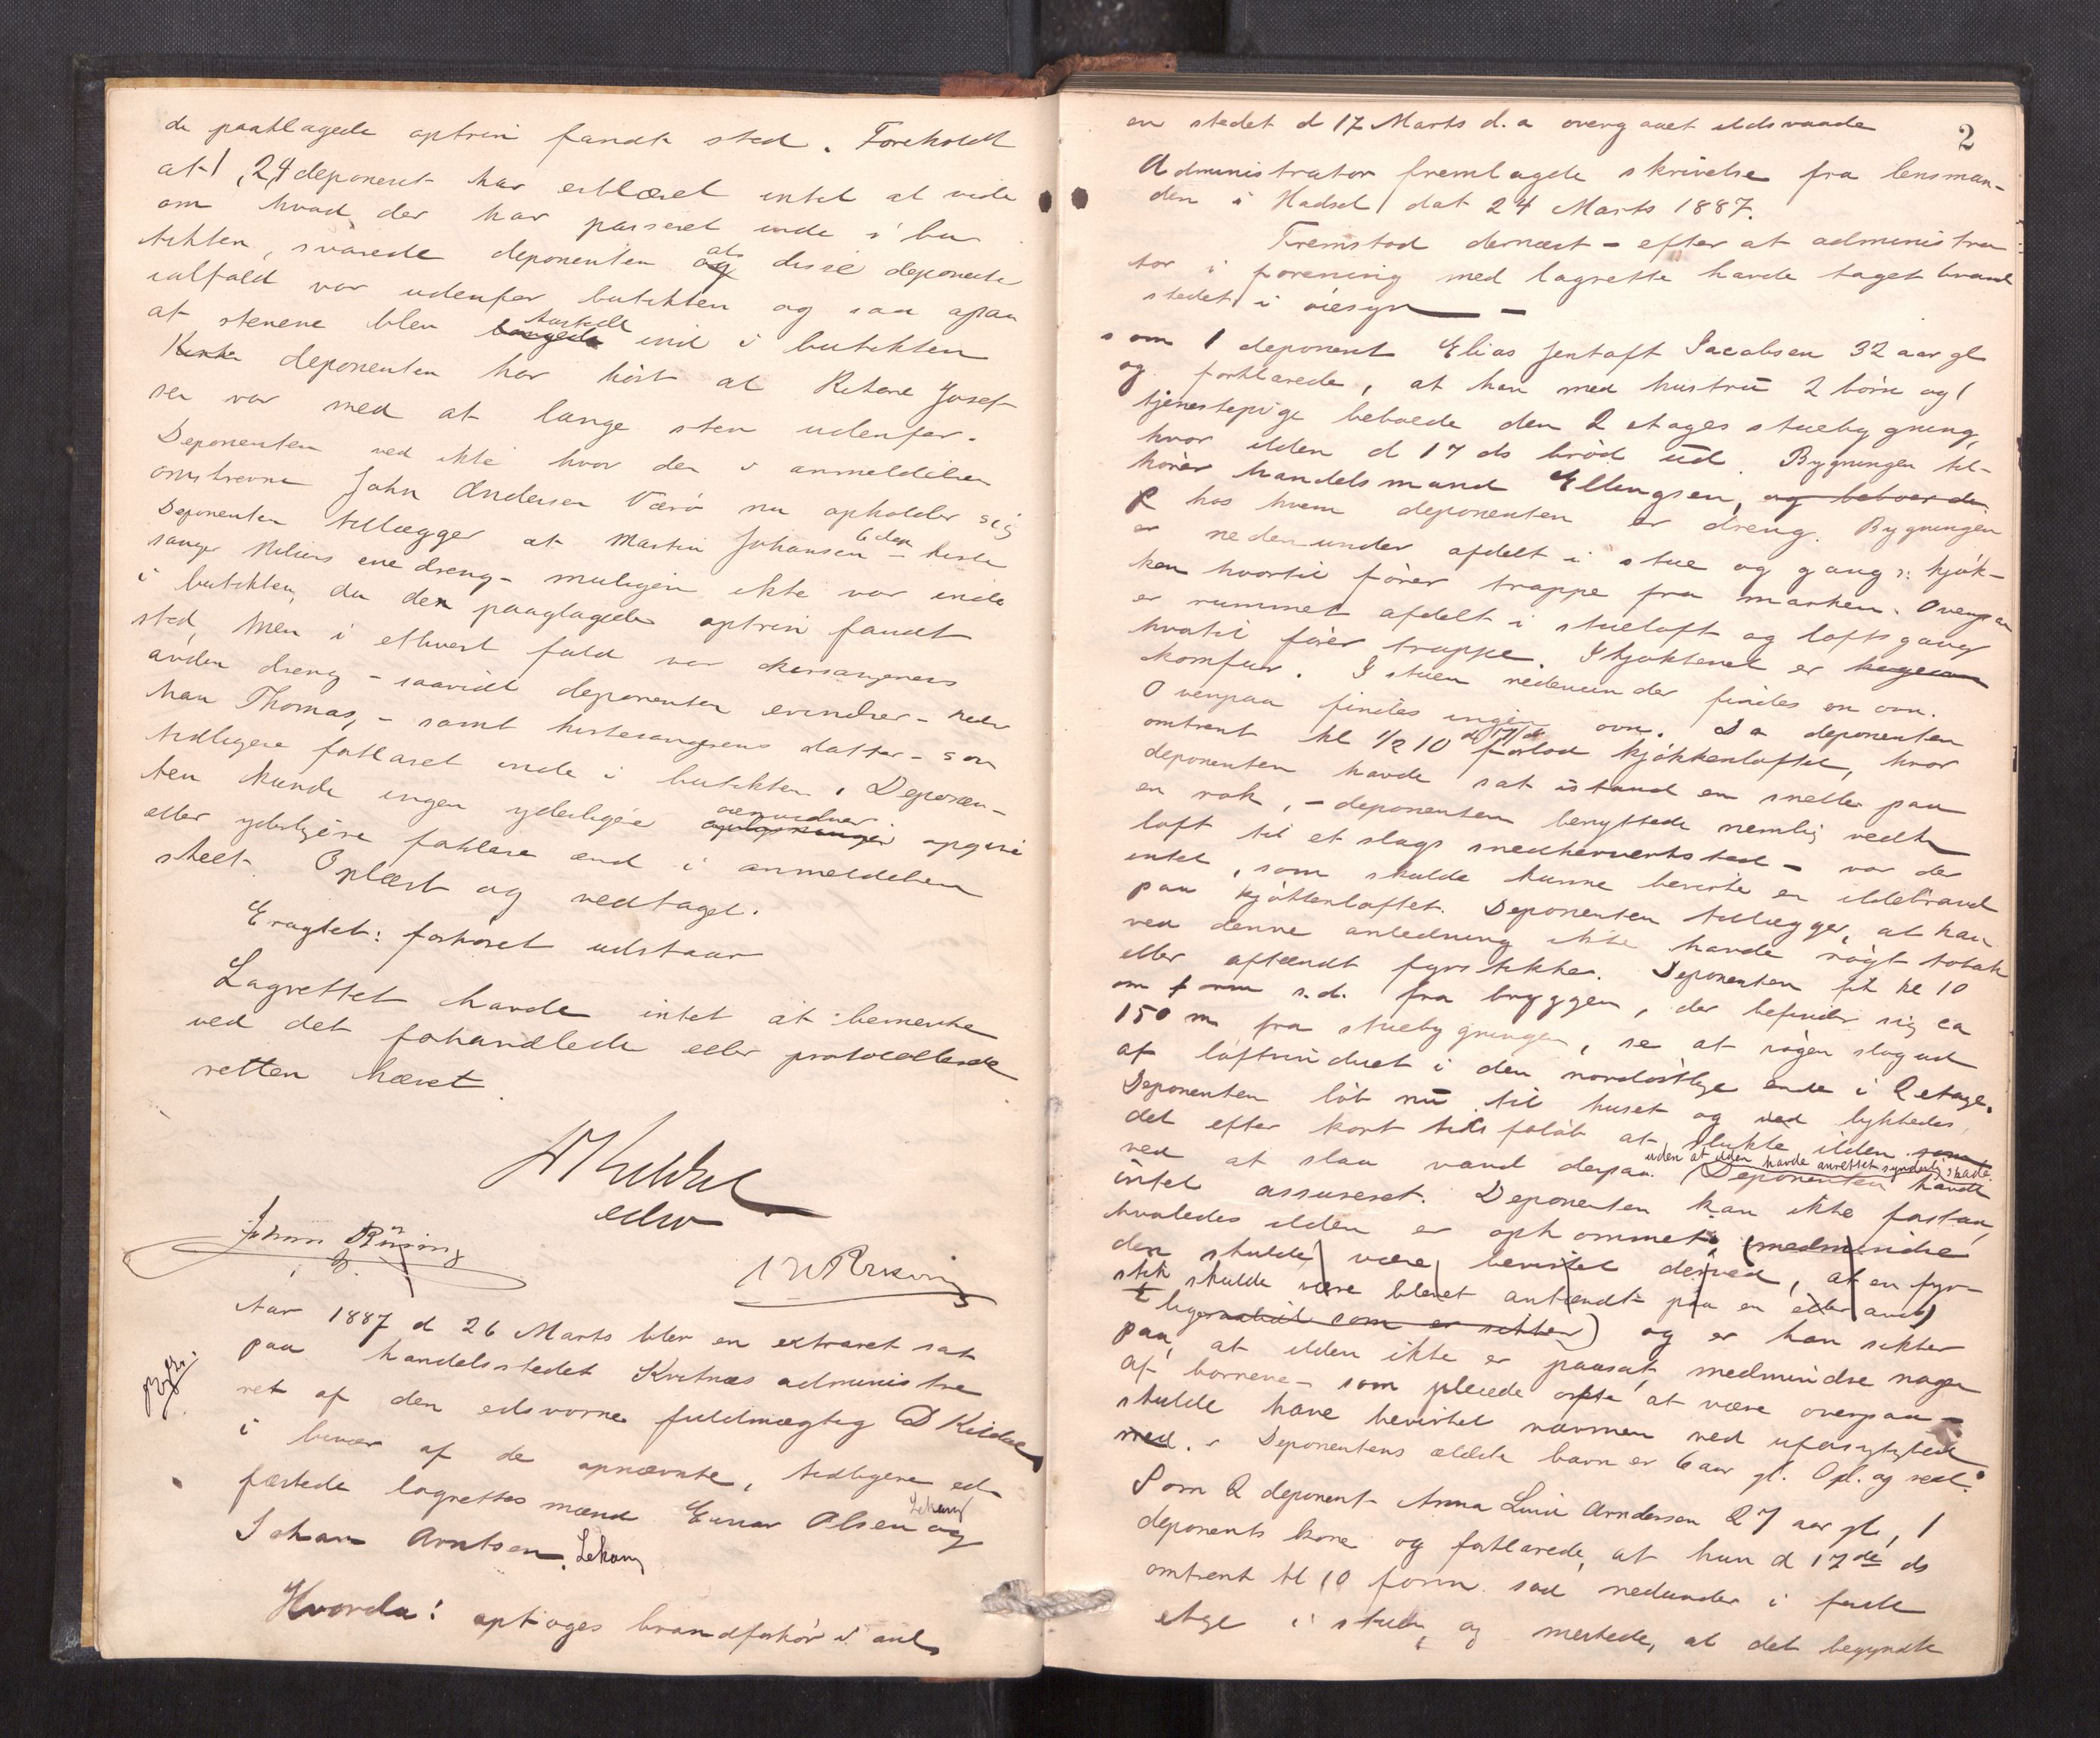 de paaklagede optrin fandt sted. Foreholdt
at 1, 2, 4 deponent har erklæret intet at vide
om hvad der har passeret inde i bu
tikken, svarede deponenten og als disse deponente
ialfald var udenfor butikken og saa apaa
at stenene blev langede kastede ind i butikken
Kirste deponenten har hørt at Rikard Josef
sen var med at lange sten udenfor.
Deponenten ved ikke hvor den i anmeldelsen
omskrevne John Andersen Værø nu opholder sig
Deponenten tillægger at Martin Johansen 6 dep kirke
sanger Nilsens ene dreng - muligen ikke var inde
i butikken, da den paaglagede optrin fandt
sted, men i ethvert fald var kirkesangerens
anden dreng - saavidt deponenten erindrer - heder
han Thomas, - samt kirkesangerens datter - som
tidligere forklaret inde i butikken. Deponen-
ten kunde ingen yderligere oplysninger opgive
eller yderligere forklare end i anmeldelsen
skeet. Oplæst og vedtaget.
Eragtet: forhøret udstaar
Lagrettet havde intet at bemerke
ved det forhandlede eller protocollerede
retten hævet.
Kildal
edsv
Johan Rising
Aar 1887 d 26 Marts blev en extraret sat
paa handelsstedet Kvitnæs administre
ret af den edsvorne fuldmægtig D Kildal
i bivær af de opnævnte, tidligere ed-
fæstede lagrettesmænd Einar Olsen Lekang og
Johan Arntsen. Lekang
Hvorda: optoges brandforhør i anl
2
en stedet d 17 Marts d.a overgaaet ildsvaade
Administrator fremlagde skrivelse fra lensman-
den i Hadsel dat 24 Marts 1887.
Fremstod dernæst - efter at administra
tor i forening med lagrette havde taget brand
stedet i øiesyn —
som 1 deponent Elias Jentoft Jacobsen 32 aar gl
og forklarede, at han med hustru 2 børn og 1
tjenestepige beboede den 2 etages stuebygning,
hvor ilden d 17 ds brød ud. Bygningen til-
hører handelsmand Ellingsen, og beboer den
hos hvem deponenten er dreng. Bygningen
er nedenunder afdelt i stue og gang s: kjøk-
ken hvortil fører trappe fra marken. Ovenpaa
er rummet afdelt i stueloft og loftsgang
hvortil fører trappe. I kjøkkenet er
komfur. I stuen nedenunder findes en ovn.
Ovenpaa findes ingen ovn. Da deponenten
omtrent kl 1/2 10 d 17 ds forlod kjøkkenloftet, hvor
deponenten havde sat istand en snelle paa
en rok, - deponenten benyttede nemlig vedk
loft til et slags snedkerverksted - var der
intet, som skulde kunne bevirke en ildebrand
paa kjøkkenloftet. Deponenten tillægger, at han
ved denne anledning ikke havde røgt tobak
eller aftændt fyrstikker. Deponenten fik kl 10
om form s.d. fra bryggen, der befinder sig ca
150 m fra stuebygningen, se at røgen slog ud
af loftvinduet i den nordøstlige ende i 2 etage.
Deponenten løb nu til huset og ved lykkedes
det efter kort tids forløb at slukke ilden som
ved at slaa vand derpaa uden at ilden havde anrettet synderlig skade. Deponenten havde
intet assureret. Deponenten kan ikke forstaa,
hvoledes ilden er opkommet, (medmindre
den skulde være bevirket derved, at en fyr-
stik skulde være blevet antændt paa en eller and)
som er sikker) og er han sikker
paa, at ilden ikke er paasat, medmindre nogen
af børnene - som pleiede ofte at være ovenpaa -
skulde have bevirket varmen ved uforsigtighed
med. Deponentens ældste barn er 6 aar gl. Opl. og vedt.
Som 2 deponent Anna Arndersen 27 aar gl, 1
deponents kone og forklarede, at hun d 17de ds
omtrent kl 10 form. sad nedunder i første
etage i stuen og merkede, at det begyndte